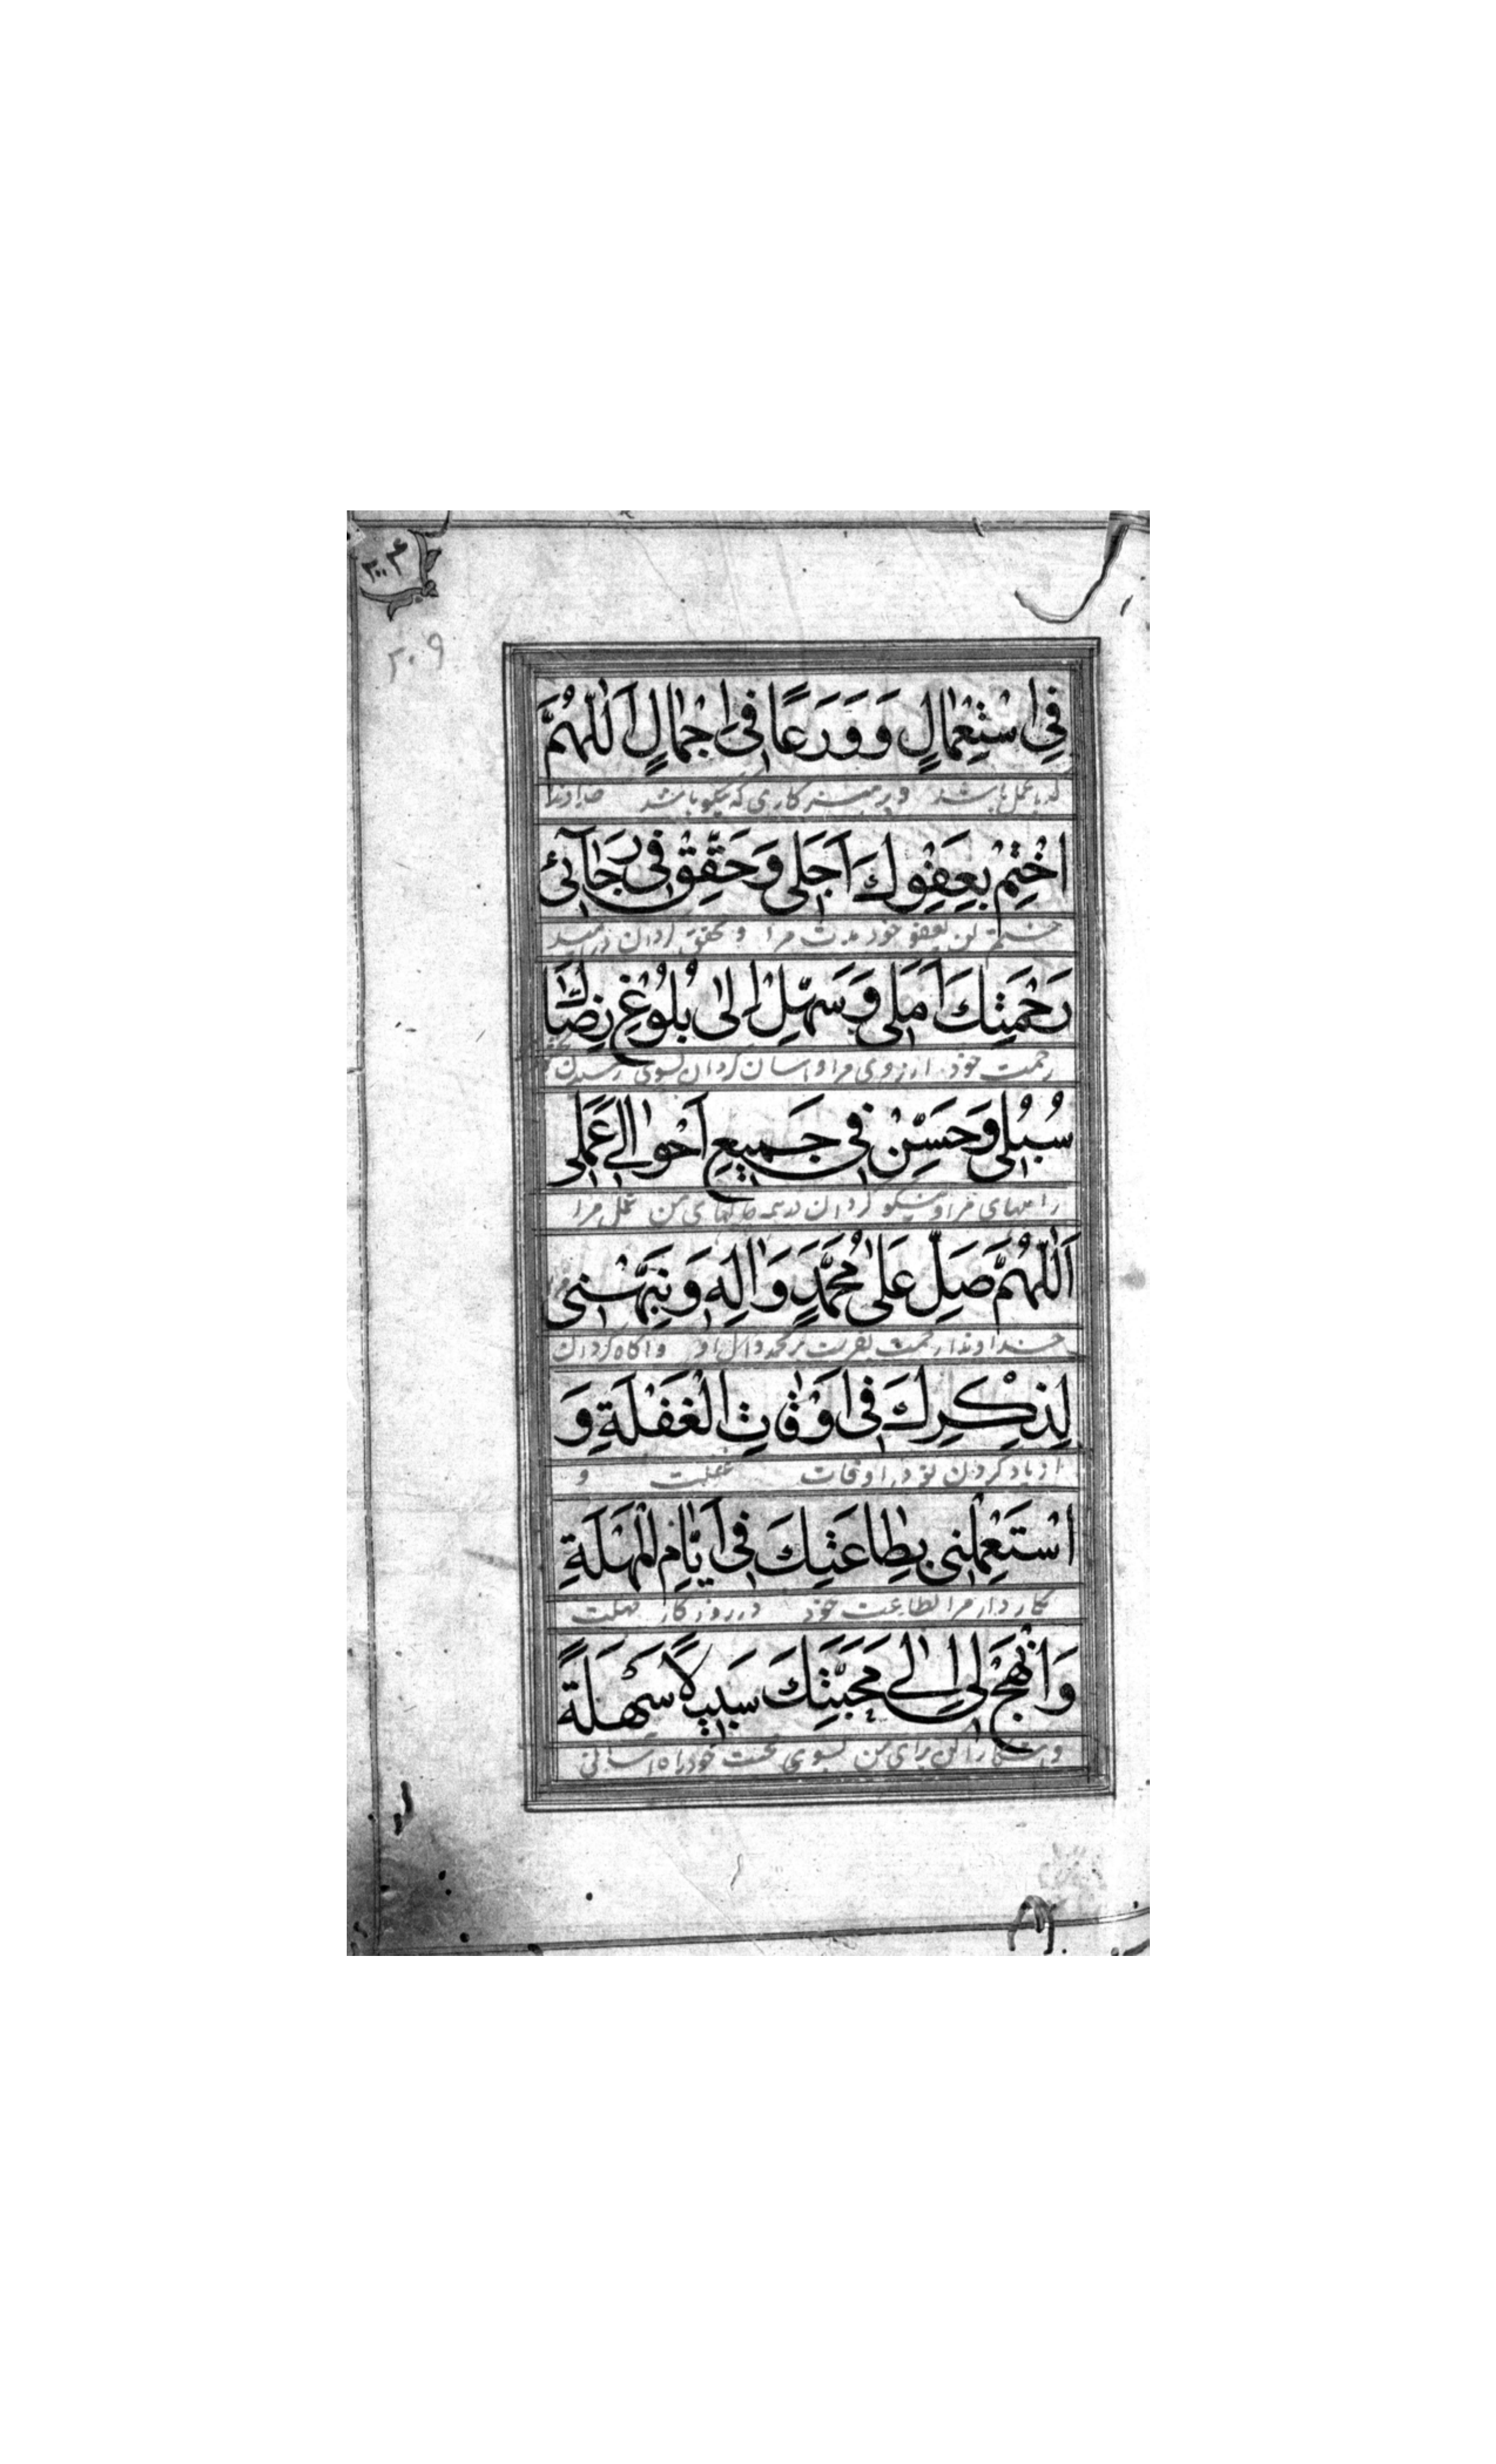 ۲۰۴
۲۰۹
فِي اسْتِعْمٰالٍ وَ وَرَعًا فِي اِجْمٰالٍ اَللّٰهُمَّ
باشد و پرهیز کاری که نیکو باشد خداوندا
اخْتِمْ بِعَفْوِكَ اَجَلي وَ حَقِّقْ في رَجٰآئِ
ختم کن بعفو خود مدت مرا و محقق گردان در امید
رَحْمَتِكَ اَمَلي وَ سَهِّلْ اِلىٰ بُلُوغِ رِضٰاكَ
رحمت خود ارزوی مرا و اسان گردان بسوی رسیدن
سُبُلي وَ حَسِّنْ في جَميعِ اَحْوٰالي عَمَلي
راههای مرا و نیکو گردان در همه حالهای من عمل مرا
اَللّٰهُمَّ صَلِّ عَلىٰ مُحَمَّدٍ وَ اٰلِهِ وَ نَبِّهْني
خداوندا رحمت بفرست بر محمد و ال او و اگاه گردان
لِذِكْرِكَ في اَوْقٰاتِ الْغَفْلَةِ وَ
از یاد کردن تو در اوقات غفلت و
اسْتَعْمِلْني بِطٰاعَتِكَ في اَيّٰامِ الْمُهْلَةِ
بکار دار مرا بطاعت خود در روزگار مهلت
وَ انْهَجْ لي اِلىٰ مَحَبَّتِكَ سَبيلاً سَهْلَةً
و اشکارا کن برای من بسوی محبت خود راه اسانی